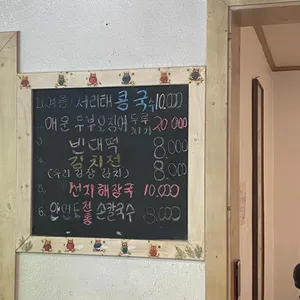 1. 여름/ 서리태 콩국수 10,000
매운 두부오징어 두루치기 20,000
빈대떡 8,000
김치전 8,000
(우리 김장 김치)
선지해장국 10,000
6. 안면도 전통 손칼국수 8,000